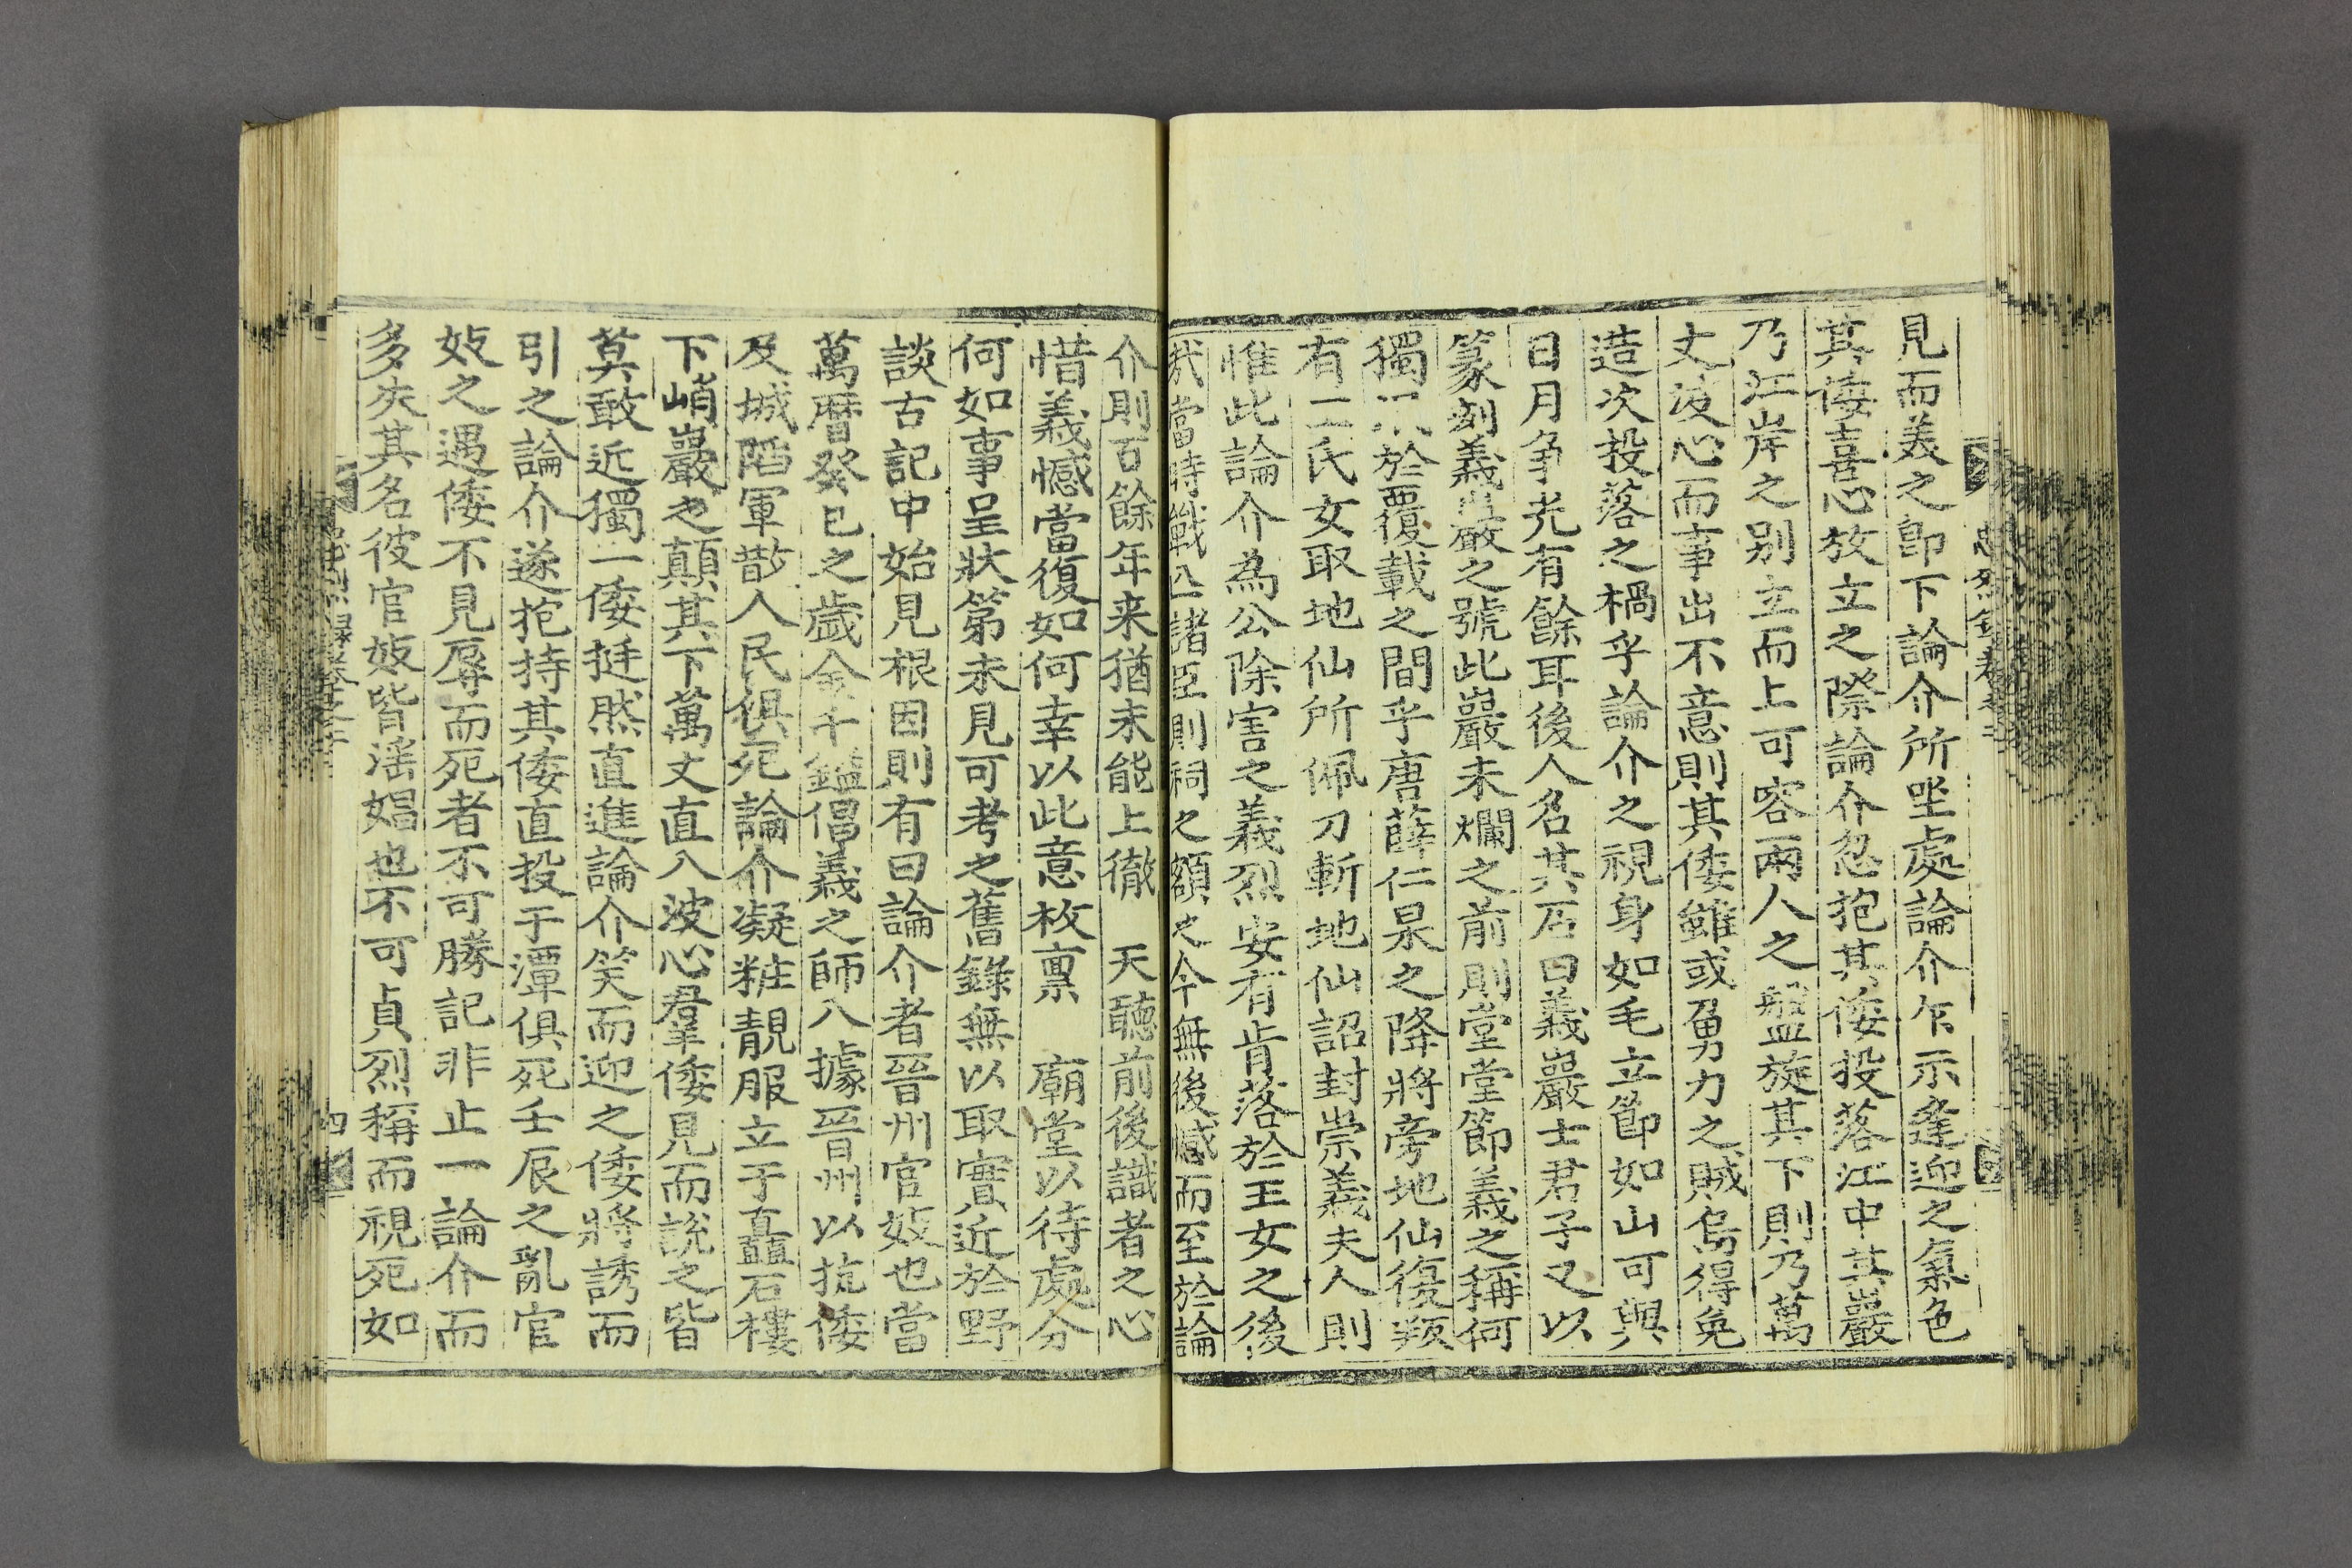 見而美之卽下論介所坐處論介乍示逢迎之氣色
其倭喜心放立之際論介忽抱其倭投落江中其巖
乃江岸之别立而上可容兩人之盤旋其下則乃萬
丈波心而事出不意則其倭雖或勇力之賊烏得免
造次投落之禍乎論介之視身如毛立節如山可與
日月争光有餘耳後人名其石曰義巖士君子又以
篆刻義巖之號此巖未爛之前則堂堂節義之稱何
獨於覆載之間乎唐薛仁杲之降將旁地仙復叛
有王氏女取地仙所佩刀斬地仙詔封崇義夫人則
惟此論介為公除害之義烈安有肯落於王女之後
哉當時戰亡諸臣則祠之額之今無後憾而至於論
介則百餘年来猶未能上徹 天聽前後識者之心
惜義憾當復如何幸以此意枚禀 廟堂以待處分
何如事呈狀第未見可考之舊錄無以取實近於野
談古記中始見根因則有曰論介者晉州官妓也當
萬曆癸巳之歲金千鎰倡義之師入據晉州以抗倭
及城陷軍散人民俱死論介凝粧靚服立于矗石樓
下峭巖之顛其下萬丈直入波心羣倭見而說之皆
莫敢近獨一倭挺然直進論介笑而迎之倭將誘而
引之論介遂抱持其倭直投于潭俱死壬辰之亂官
妓之遇倭不見辱而死者不可勝記非止一論介而
多失其名彼官妓皆淫娼也不可貞烈稱而視死如
忠烈錄卷之二
四